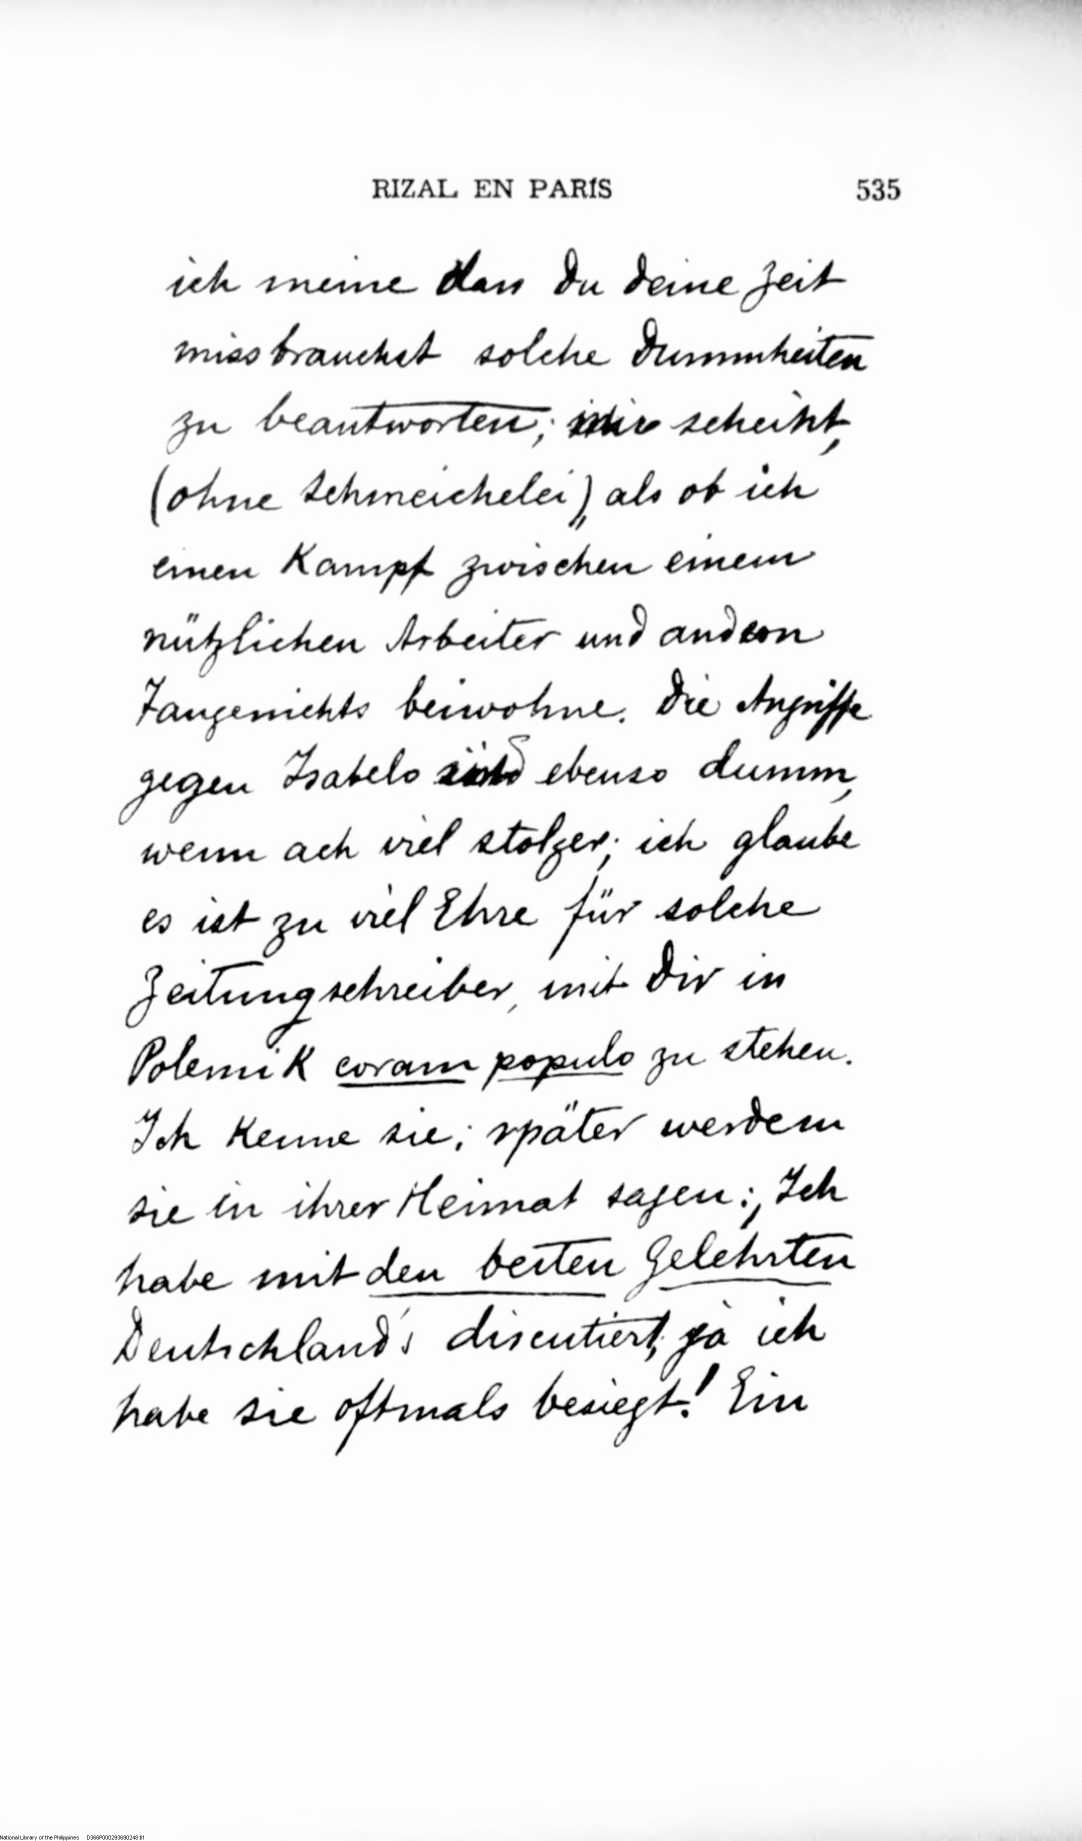 RIZAL EN PARÍS 535
ich meine dass Du deine Zeit
missbrauchst solche Dummheiten
zu beantworten; mir scheint,
(ohne Schmeichelei), als ob ich
einen Kampf zwischen einem
nützlichen Arbeiter und andern
Taugenichts beiwohne. Die Angriffe
gegen Isabelo sind ebenso dumm,
wenn ach viel stolzer; ich glaube
es ist zu viel Ehre für solche
Zeitungschreiber, mit Dir in
Polemik coram populo zu stehen.
Ich kenne sie; später werdem
sie in ihrer Heimat sagen:, Ich
habe mit den besten Gelehrten
Deutschland's discutiert, ja ich
habe sie oftmals besiegt! Ein
National Library of the Philippines